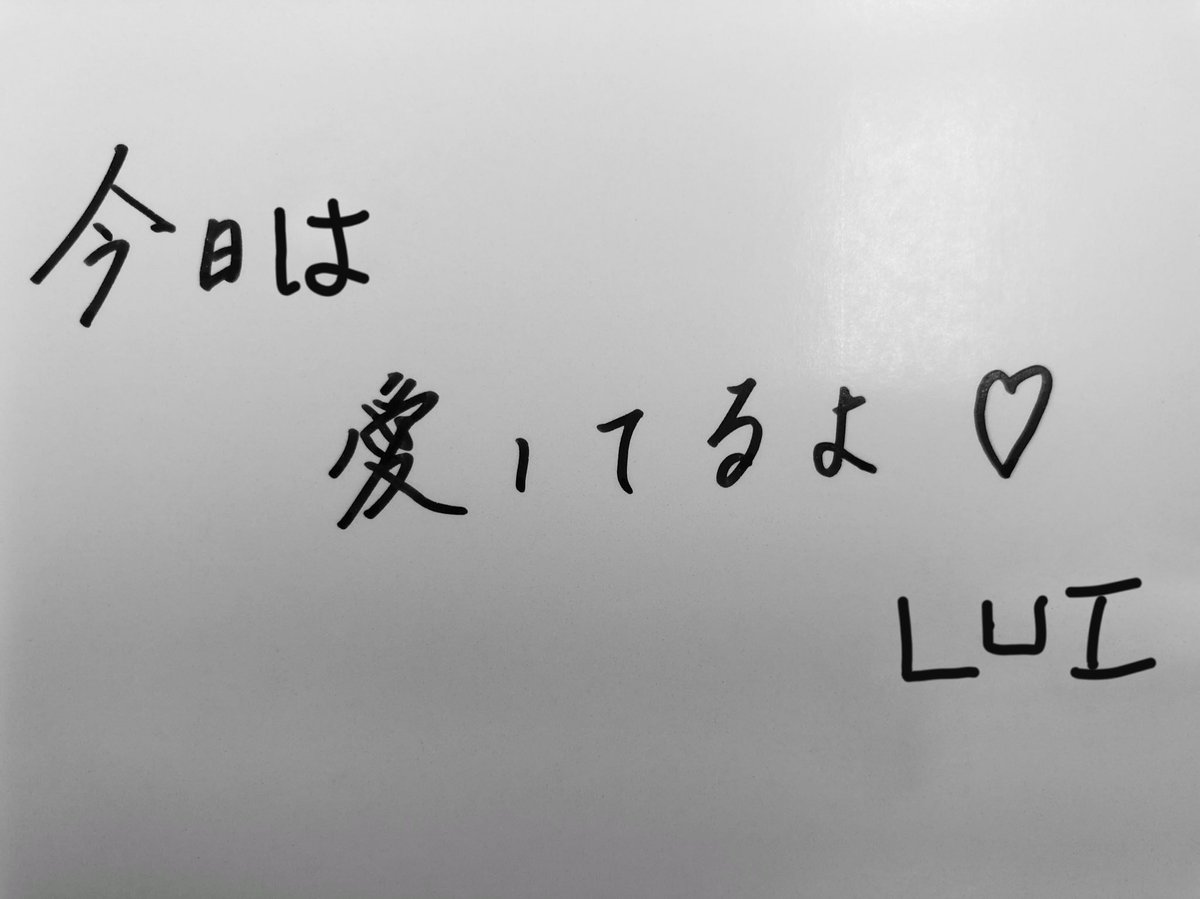 今日は
愛してるよ♡
LUI